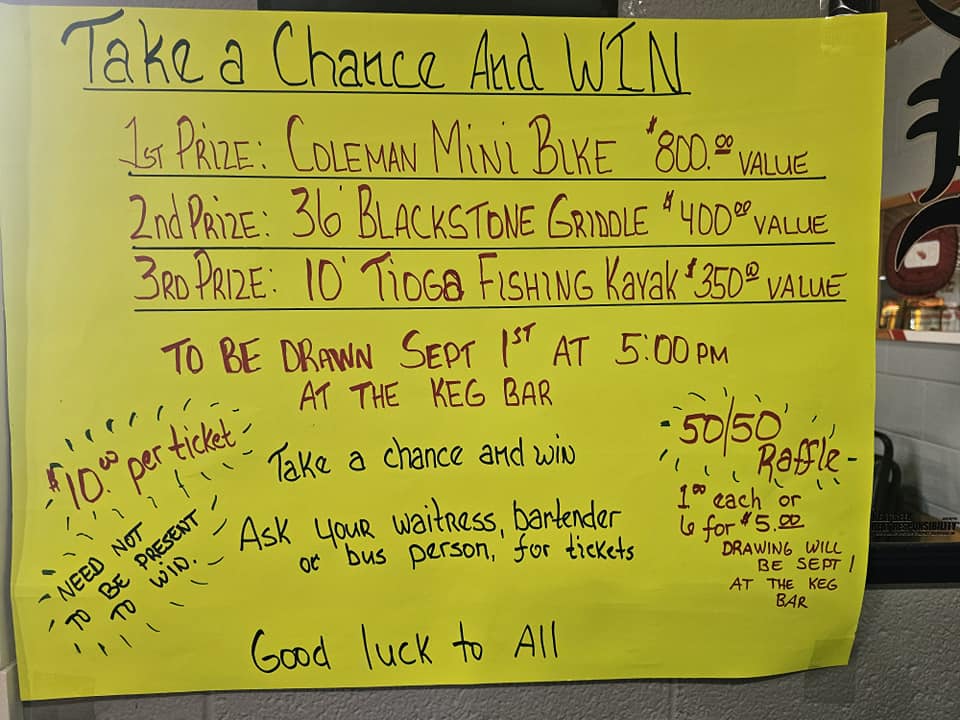 Take a Chance And WIN
1ST PRIZE: COLEMAN MINI BIKE $800.00 VALUE
2nd PRIZE: 36" BLACKSTONE GRIDDLE $400.00 VALUE
3RD PRIZE: 10' TIOGA FISHING Kayak $350.00 VALUE
TO BE DRAWN SEPT 1ST AT 5:00 PM
AT THE KEG BAR
$10.00 per ticket
NEED NOT
TO BE PRESENT
TO WIN.
Take a chance and win
Ask your waitress, bartender
or bus person, for tickets
50/50
Raffle
1.00 each or
6 for $5.00
DRAWING WILL
BE SEPT 1
AT THE KEG
BAR
Good luck to All
RESPONSIBILITY